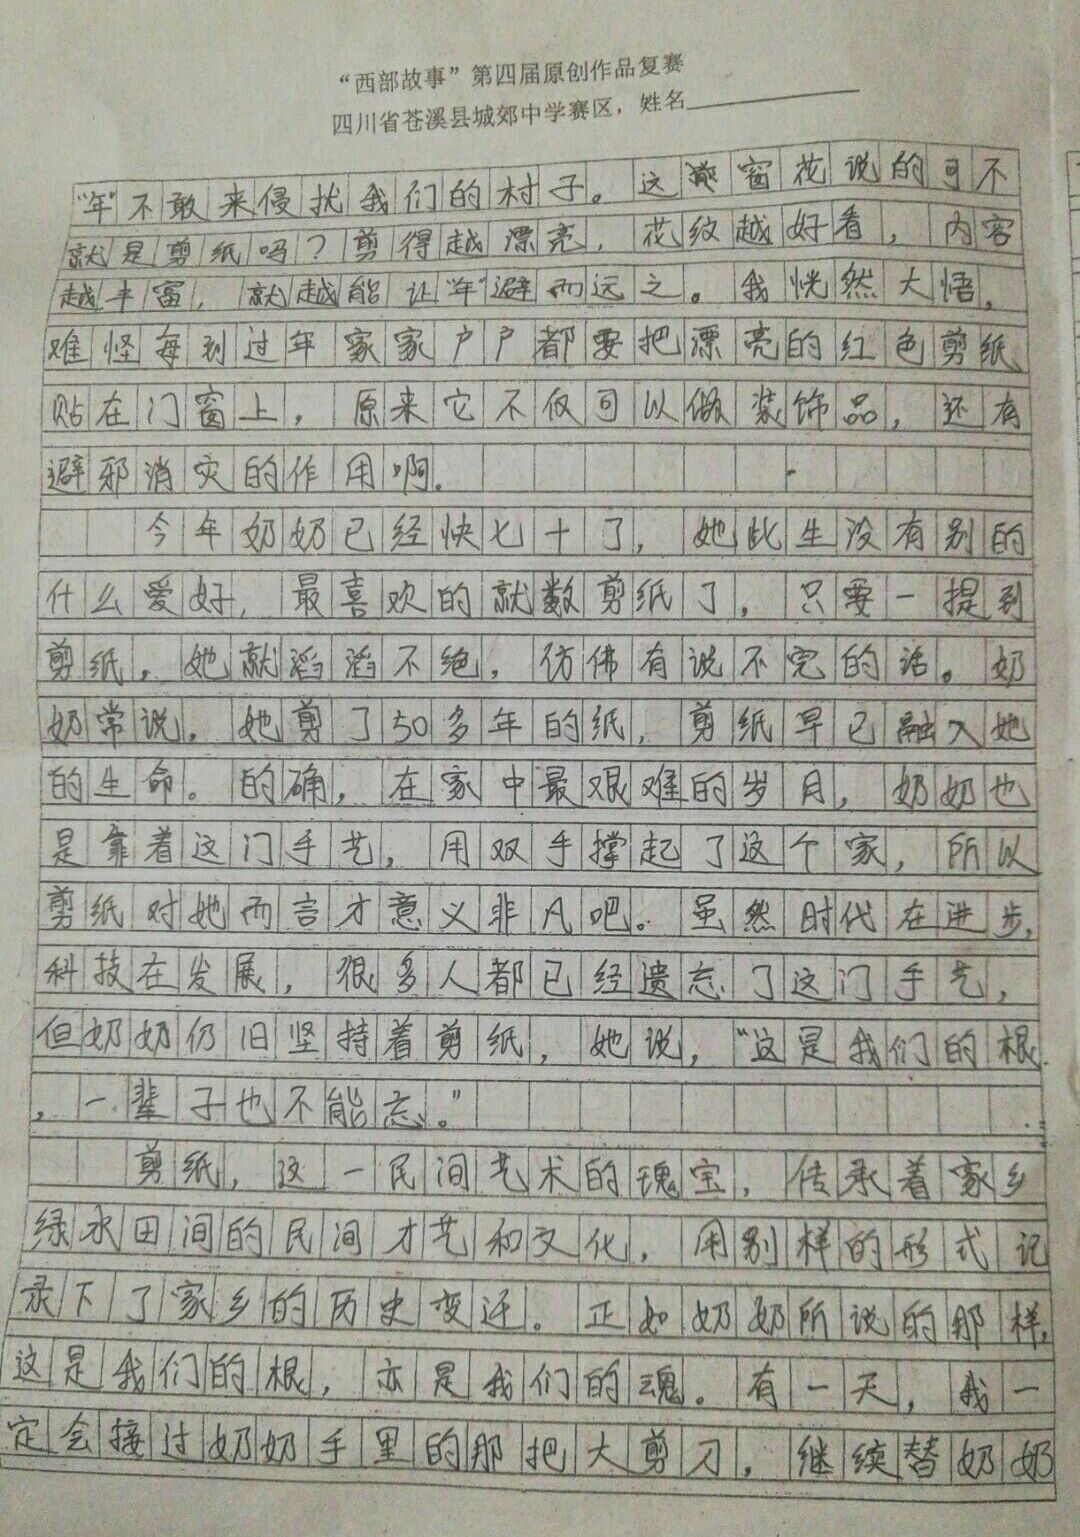 “西部故事”第四届原创作品复赛
四川省苍溪县城郊中学赛区，姓名
“年”不敢来侵扰我们的村子。这窗花说的可不
就是剪纸吗？剪得越漂亮，花纹越好看，内容
越丰富，就越能让“年”避而远之。我恍然大悟，
难怪每到过年家家户户都要把漂亮的红色剪纸
贴在门窗上，原来它不仅可以做装饰品，还有
避邪消灾的作用啊。
今年奶奶已经快七十了，她此生没有别的
什么爱好，最喜欢的就数剪纸了，只要一提到
剪纸，她就滔滔不绝，仿佛有说不完的话。奶
奶常说，她剪了50多年的纸，剪纸早已融入她
的生命。的确，在家中最艰难的岁月，奶奶也
是靠着这门手艺，用双手撑起了这个家，所以
剪纸对她而言才意义非凡吧。虽然时代在进步，
科技在发展，很多人都已经遗忘了这门手艺，
但奶奶仍旧坚持着剪纸，她说，“这是我们的根
，一辈子也不能忘。”
剪纸，这一民间艺术的瑰宝，传承着家乡
绿水田间的民间才艺和文化，用别样的形式记
录下了家乡的历史变迁。正如奶奶所说的那样，
这是我们的根，亦是我们的魂。有一天，我一
定会接过奶奶手里的那把大剪刀，继续替奶奶